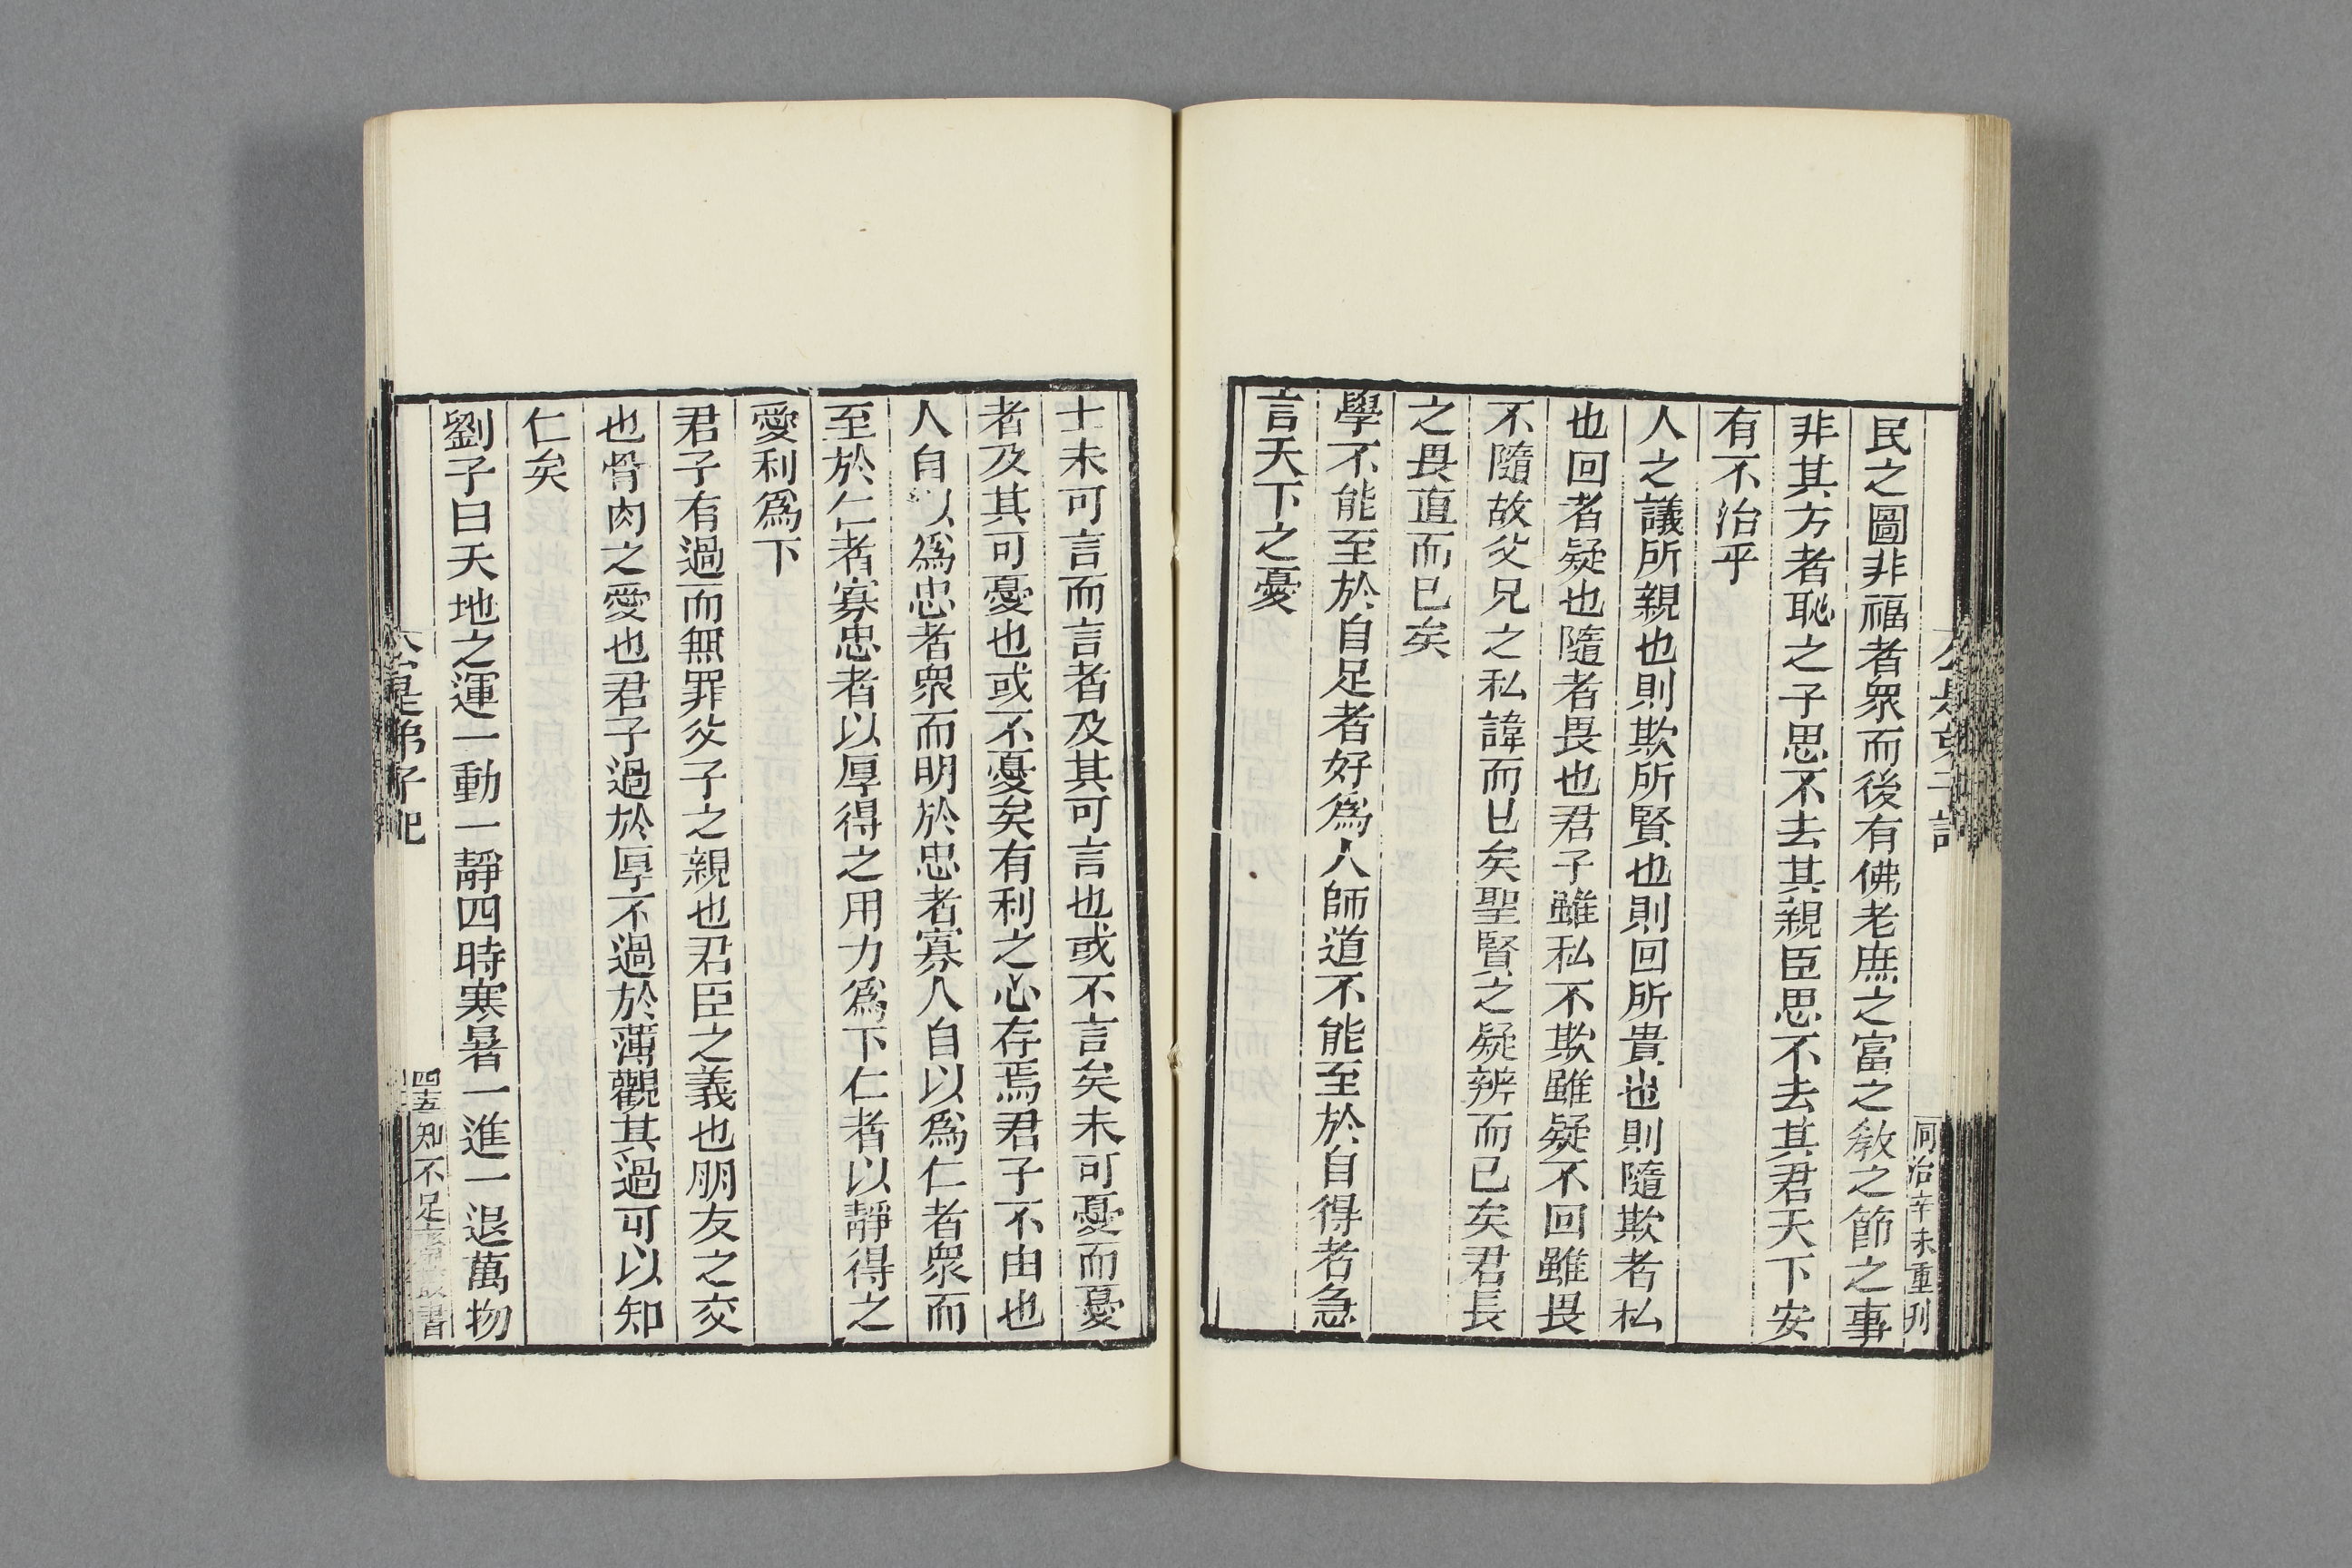 民之圖非福者衆而後有佛老庶之富之敎之節之事
非其方者恥之子思不去其親臣思不去其君天下安
有不治乎
人之議所親也則欺所賢也則回所貴也則隨欺者私
也回者疑也隨者畏也君子雖私不欺雖疑不回雖畏
不隨故父兄之私諱而已矣聖賢之疑辨而已矣君長
之畏直而已矣
學不能至於自足者好爲人師道不能至於自得者急
言天下之憂
同治辛未重刋
士未可言而言者及其可言也或不言矣未可憂而憂
者及其可憂也或不憂矣有利之心存焉君子不由也
人自以爲忠者衆而明於忠者寡人自以爲仁者衆而
至於仁者寡忠者以厚得之用力爲下仁者以靜得之
愛利爲下
君子有過而無罪父子之親也君臣之義也朋友之交
也骨肉之愛也君子過於厚不過於薄觀其過可以知
仁矣
劉子曰天地之運一動一靜四時寒暑一進一退萬物
公是弟子記
知不足齋叢書